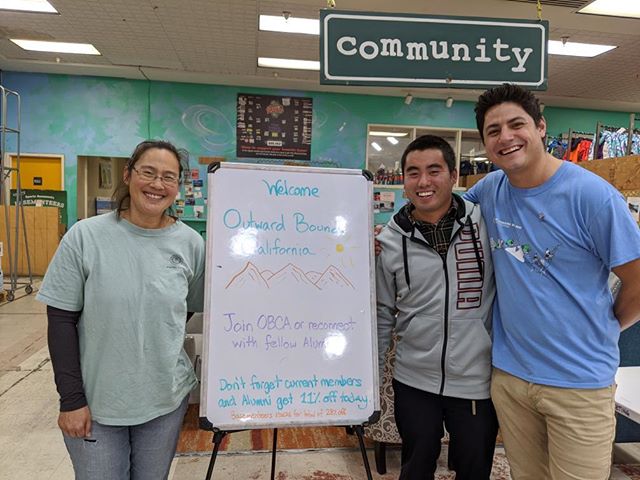 Community
Welcome
Outward Bound
California
Join OBCA or reconnect
with fellow Alumni
Don't forget current members
and Alumni get 11% off today.